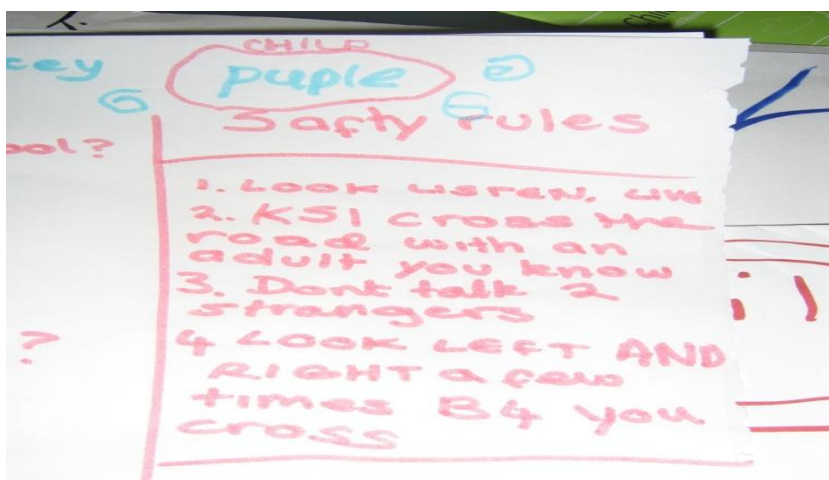 CHILD
puple
Safty rules
ool?
1. LOOK LISTEN, LIVE
2. KS1 cross the
road with an
adult you know
3. Dont talk 2
strangers
?
4 LOOK LEFT AND
RIGHT a few
times B4 you
cross